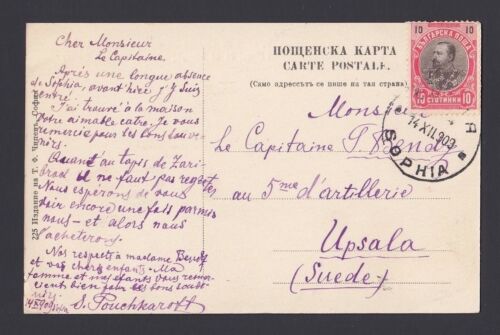 Cher Monsieur
Le Capitaine.
Après une longue absence
de Sophia, avant hier j'y suis
entré
J'ai trouvé à la maison
Votre aimable catre. Je vous
remercie pour les bons souve-
nirs.
Quant au tapis de Zari-
brod il ne faut pas regretter
Nous espérons de vous
voir encore une fois parmis
nous – et alors nous
l'acheterons.
Nos respects à madame
et vos chers enfants. Ma
femme et mes enfants vous remer-
cient bien pour les bons souve-
nirs.
S. Pouchkaroff
225 Издание на Т. Ф. Чипевъ, София
ПОЩЕНСКА КАРТА
CARTE POSTALE.
(Само адрессътъ се пише на тая страна)
Monsieur
Le Capitaine P.
au 5me d'artillerie
Upsala
(Suede)
10 10
БЪЛГАРСКА ПОЩА
10 СТОТИНКИ 10
14 XII 903
SOPHIA